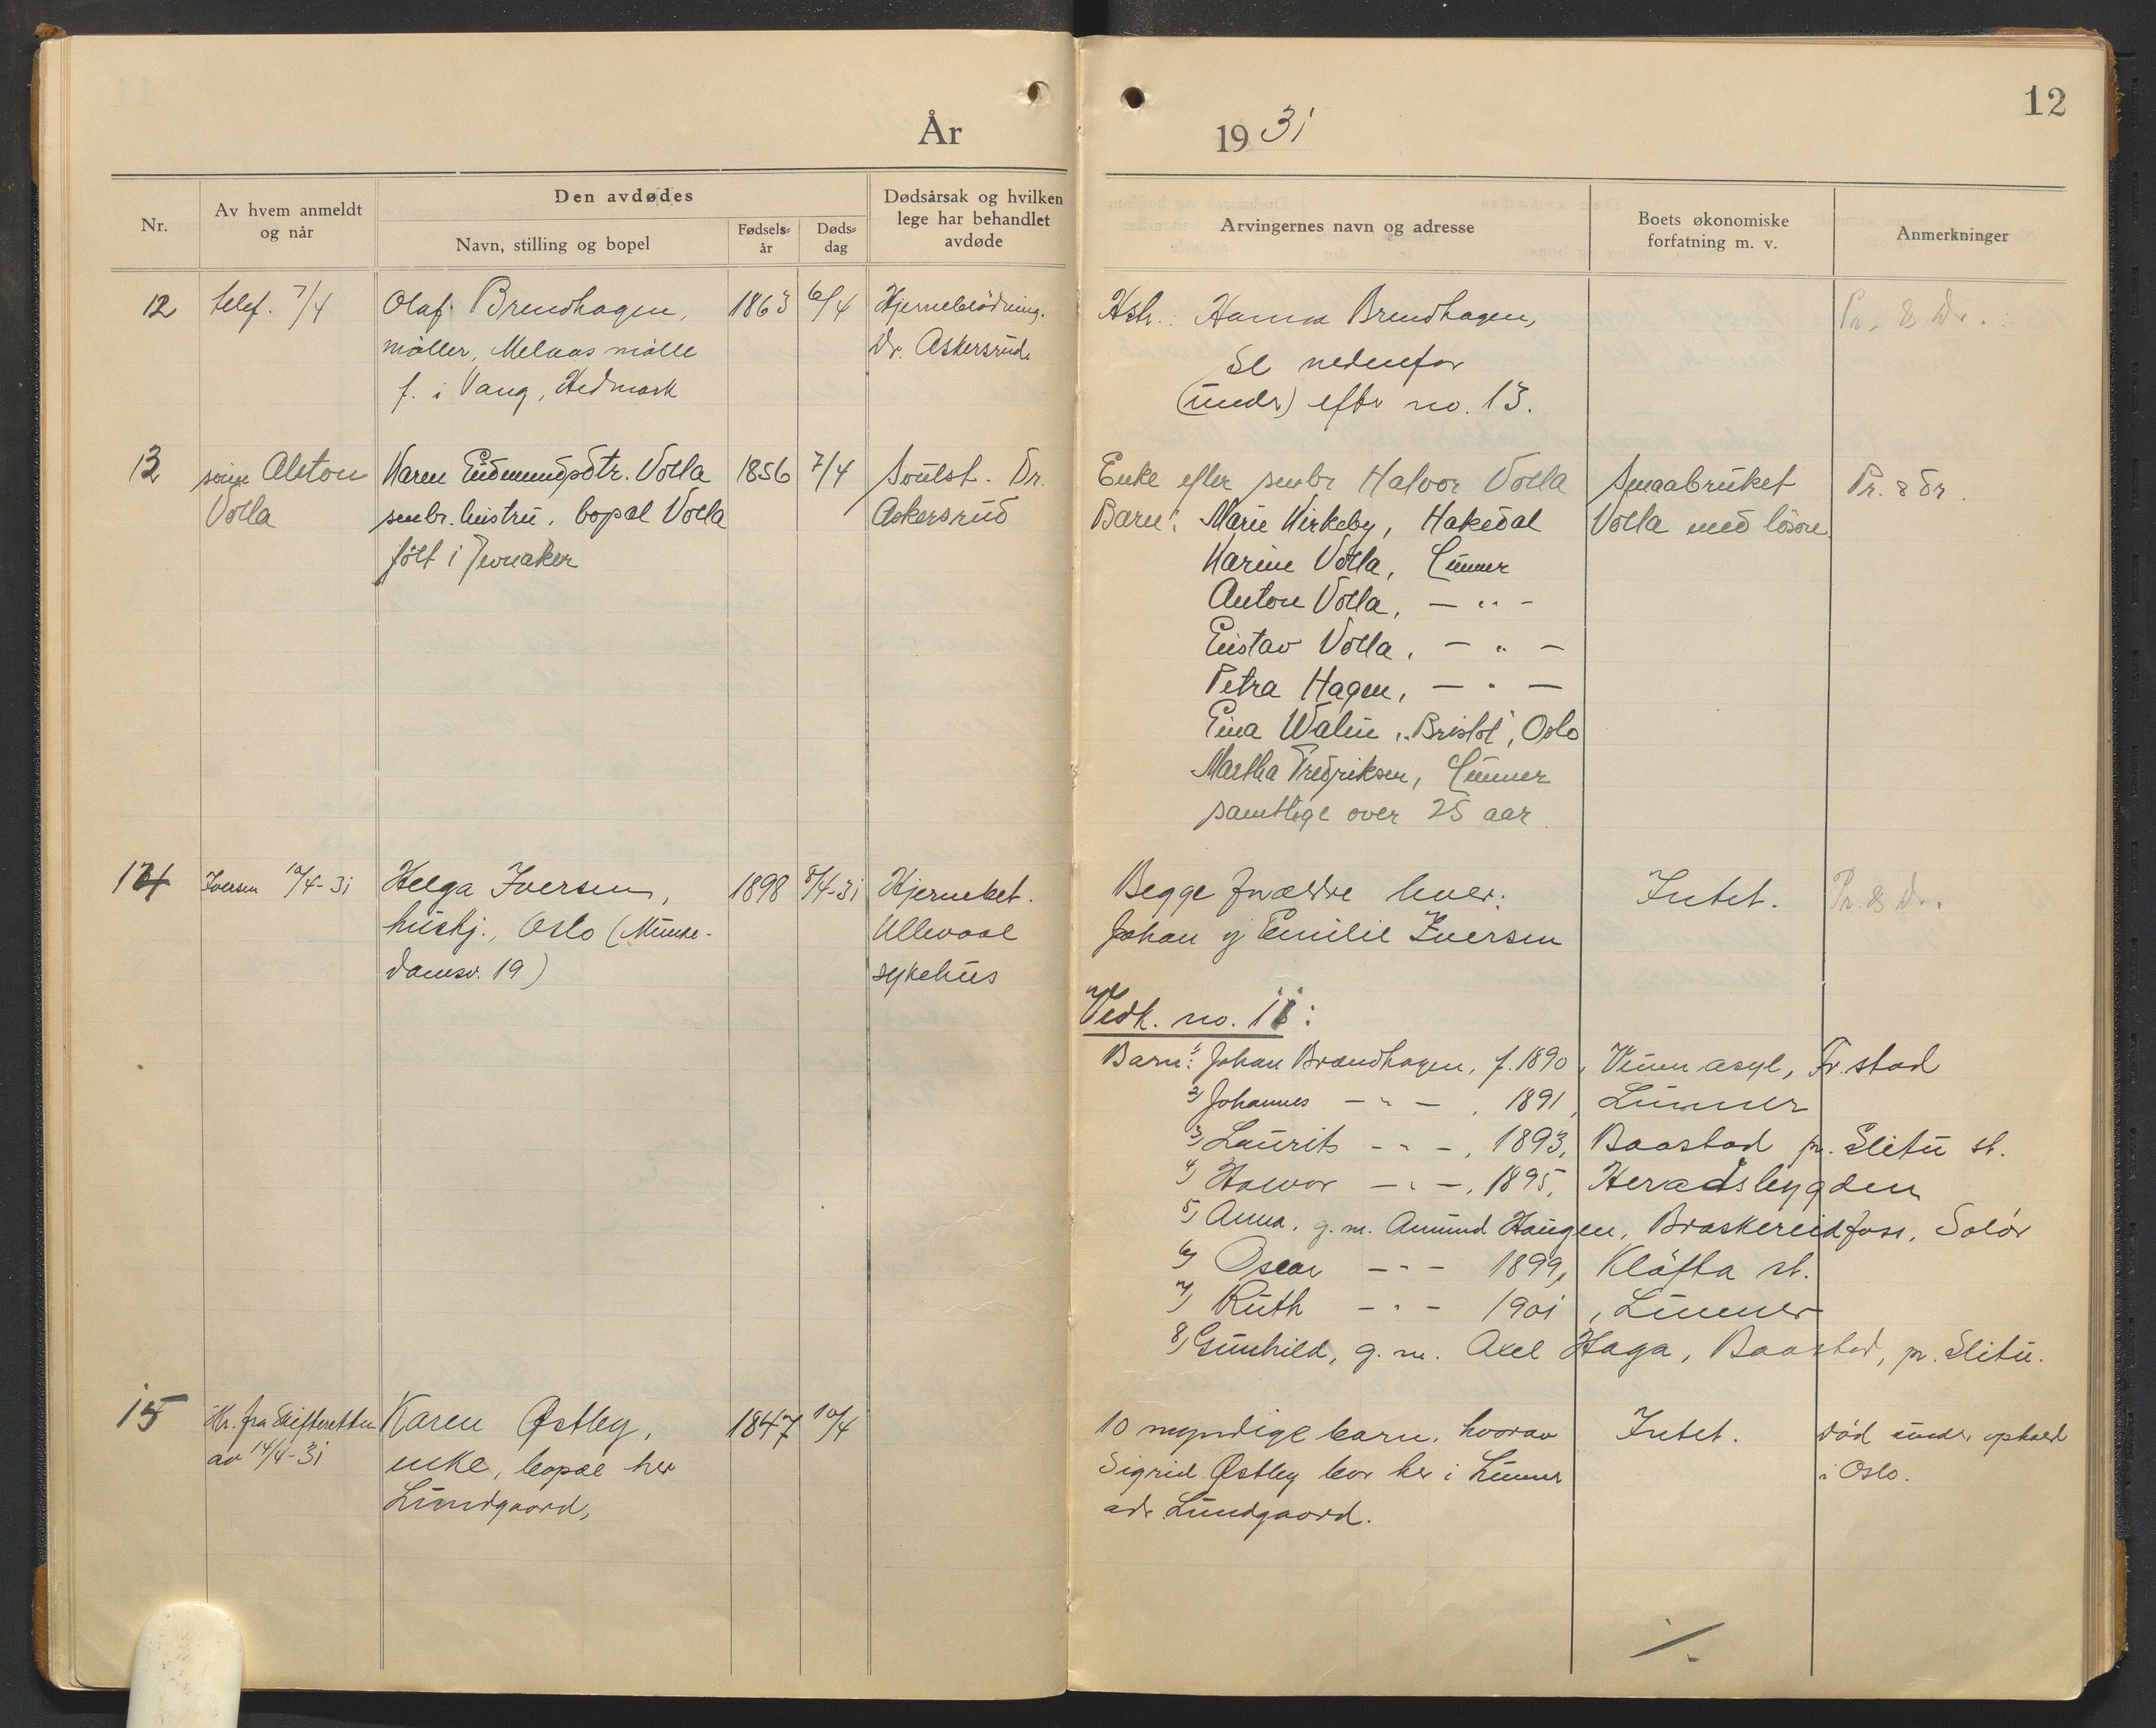 År 1931
12
Nr.
Av hvem anmeldt
og når
Den avdødes
Navn, stilling og bopel
Fødsels-
år
Døds-
dag
Dødsårsak og hvilken
lege har behandlet
avdøde
Arvingernes navn og adresse
Boets økonomiske
forfatning m. v.
Anmerkninger
12 telef. 7/4 Olaf Brendhagen, 1863 6/4 Hjerneblödning. Hstr.: Hanna Brendhagen, Pr. & Dr.
möller, Melaas mölle Dr. Askersrud. Se nedenfor
f. i Vang, Hedmark (under) efter no. 13.
13 Volla Karen Gudmundsdtr. Volla 1856 7/4 Svulst. Dr. Enke efter smbr Halvor Volla Smaabruket Pr. & Dr.
smbr. hustru, bopæl Volla Askersrud Barn: Marie Kirkeby, Hakedal Volla med lösöre
föit i Jevnaker Karine Volla, Lunner
Anton Volla, — " —
Gustav Volla, — " —
Petra Hagen, — " —
Gina Walin, "Bristol", Oslo
Martha Fredriksen, Lunner
samtlige over 25 aar
14 Iversen 10/4-31 Helga Iversen, 1898 8/4-31 Hjernebet. Begge forældre lever: Intet. Pr. & Dr.
hushj., Oslo (Munke- Ullevaal Johan og Emilie Iversen
damsv. 19) sykehus
Vedk. no. 12:
Barn: 1) Johan Brændhagen, f. 1890, Veum asyl, Fr.stad
2) Johannes — " —, 1891, Lunner
3) Laurits — " —, 1893, Baastad pr. Slitu st.
4) Halvor — " —, 1895, Heradsbygden
5) Anna, g. m. Amund Haugen, Braskereidfoss, Solör
6) Oscar — " — 1899, Klöfta st.
7) Ruth — " — 1901, Lunner
8) Gunhild, g. m. Axel Haga, Baastad, pr. Slitu.
15 fra Skifteretten Karen Østby, 1847 10/4 10 myndige barn, hvorav Intet. Död under ophold
av 14/4-31 enke, bopæl her Sigrid Østby bor her i Lunner i Oslo.
Lundgaard, adr. Lundgaard.